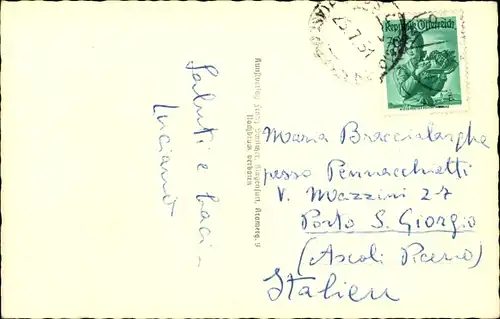 Saluti e baci -
Luciano
Kunstverlag Franz Schilcher, Klagenfurt, Kramerg. 9
Nachdruck verboten
25.7.51
Republik Österreich
Maria Braccialarghe
presso Pennacchietti
V. Mazzini 27
Porto S. Giorgio
(Ascoli Piceno)
Italien